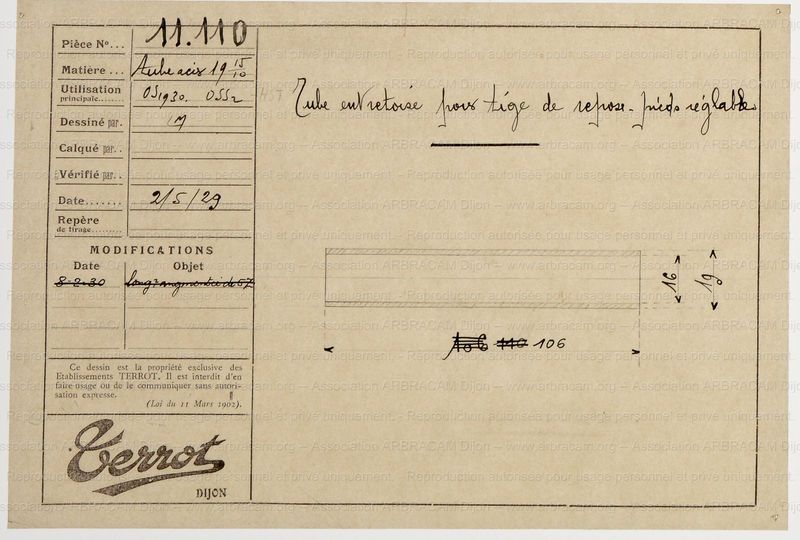 Pièce N°... 11.110
Matière ... Tube acier 19 15/10
Utilisation principale........ OS1930. OSS2
Dessiné par.
Calqué par..
Vérifié par..
Date....... 2/5/29
Repère
de tirage.........
MODIFICATIONS
Date Objet
8-2-30
Ce dessin est la propriété exclusive des
Etablissements TERROT. Il est interdit d'en
faire usage ou de le communiquer sans autori-
sation expresse.
(Loi du 11 Mars 1902).
Terrot
DIJON
Tube entretoise pour tige de repose-pieds réglable
16
19
110 106
Association ARBRACAM Dijon – www.arbracam.org
Reproduction autorisée pour usage personnel et privé uniquement.